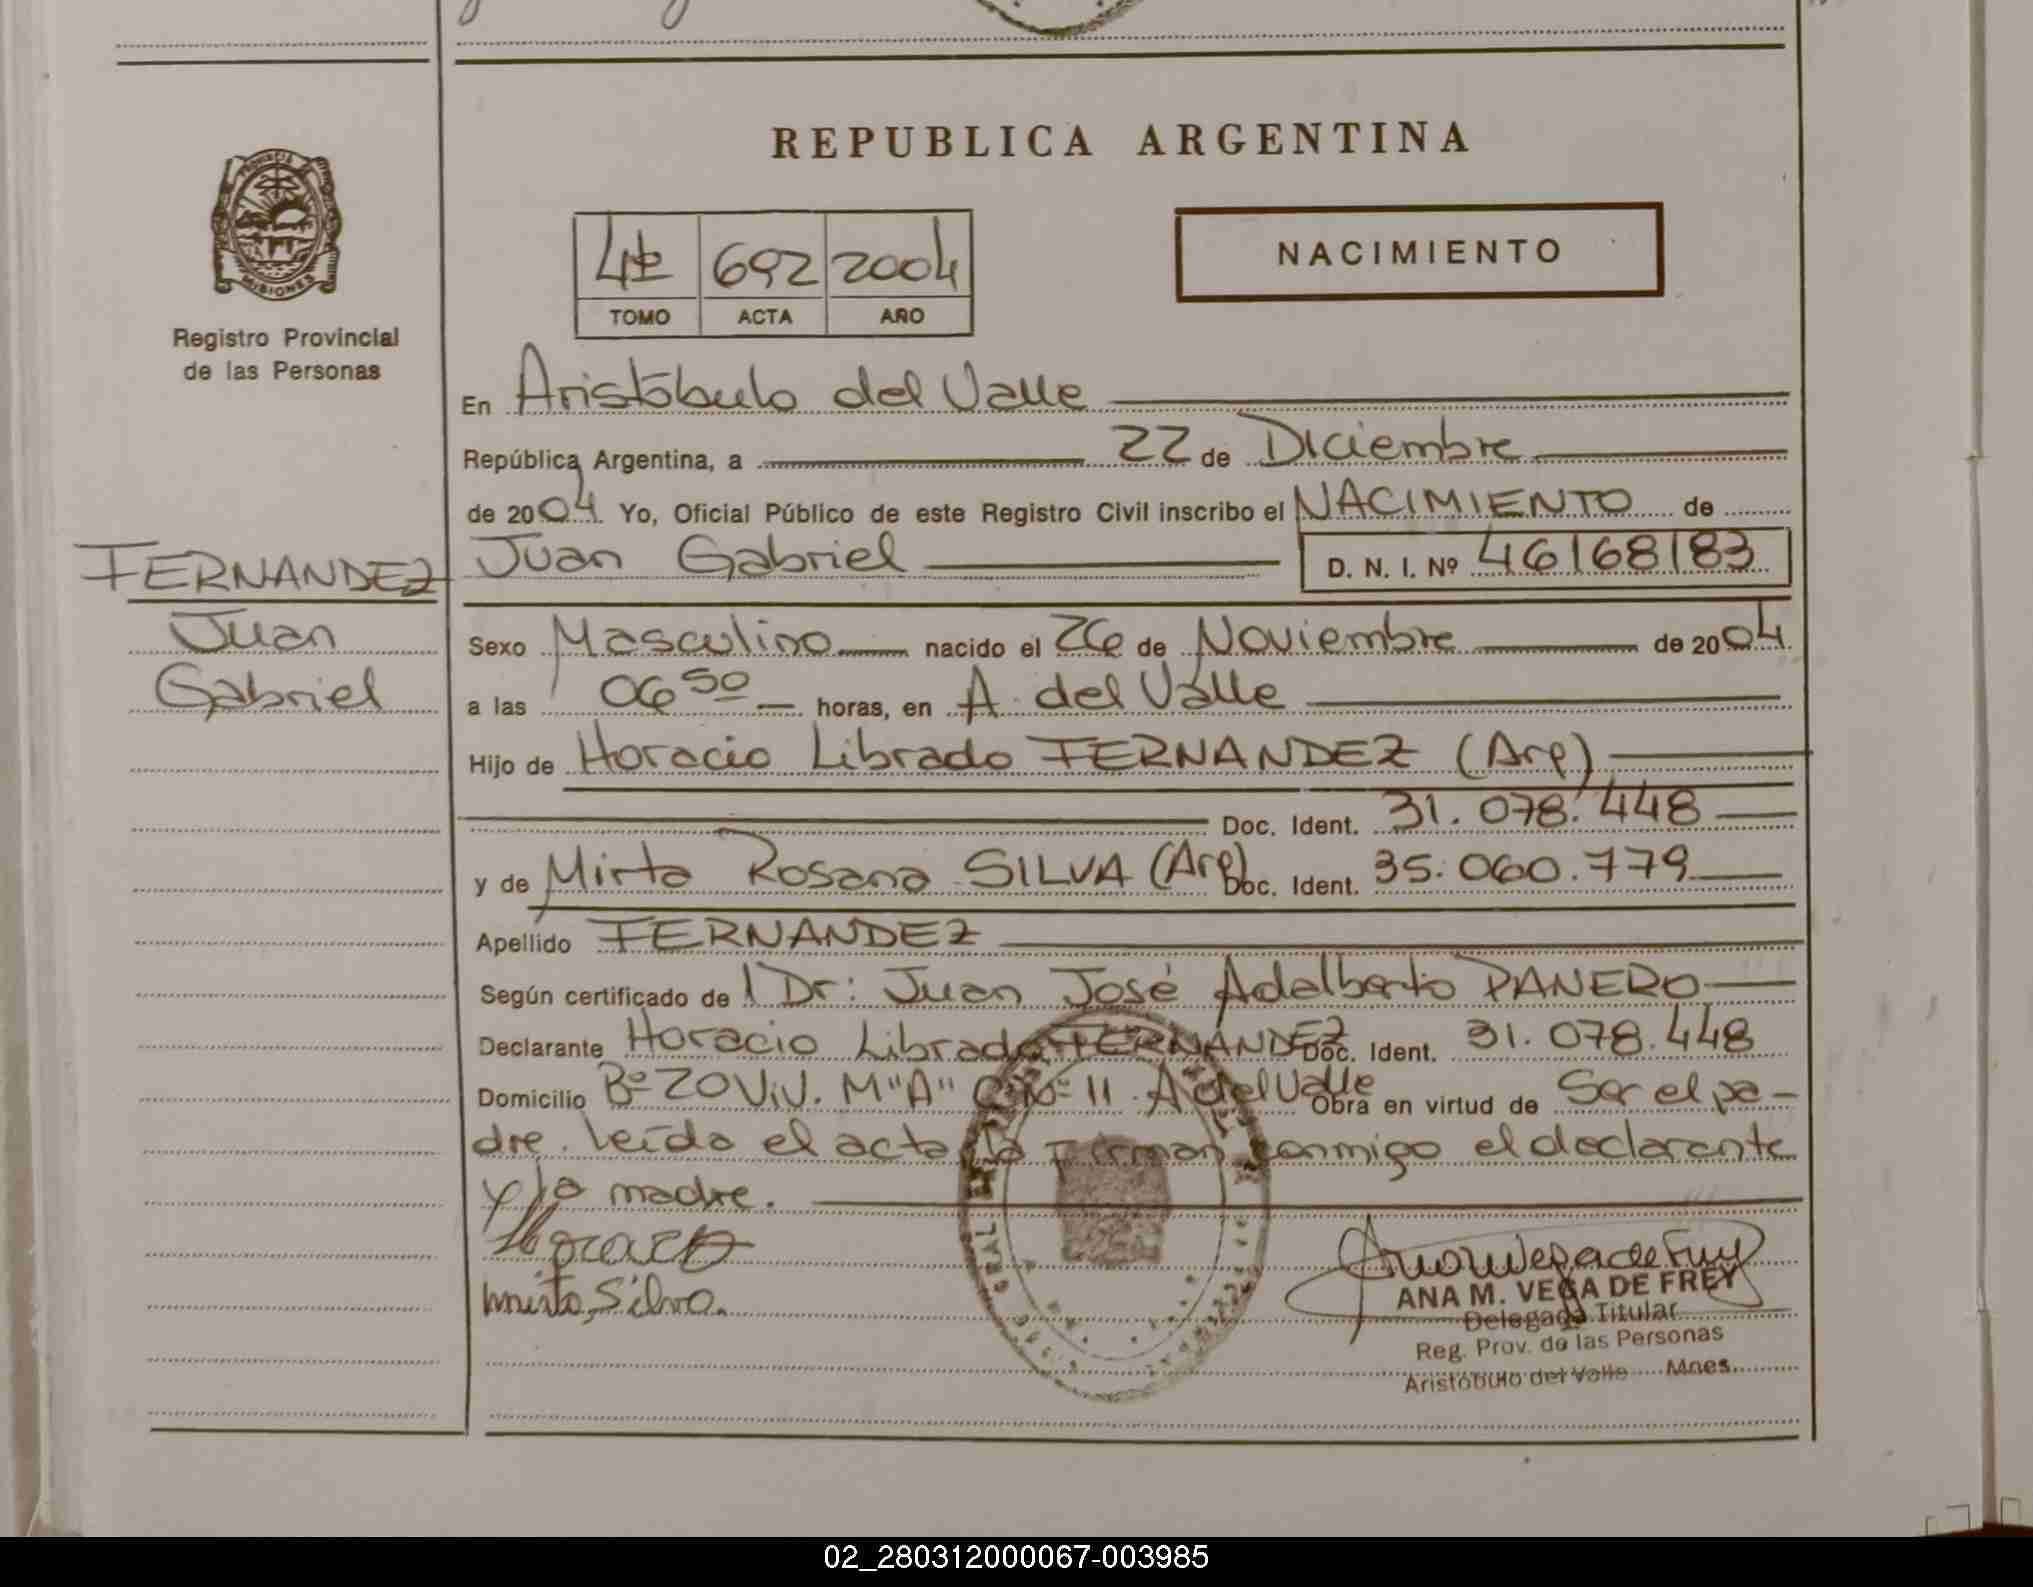 REPUBLICA ARGENTINA
NACIMIENTO
692 2004
TOMO ACTA AÑO
PROVINCIA
MISIONES
Registro Provincial
de las Personas
En Aristóbulo del Valle
República Argentina, a 22 de Diciembre
de 2004. Yo, Oficial Público de este Registro Civil inscribo el NACIMIENTO de
Juan Gabriel D. N. I. Nº 46168183
FERNANDEZ
Juan
Gabriel
Sexo Masculino nacido el 26 de Noviembre de 2004
a las 06 50 horas, en A. del Valle
Hijo de Horacio Librado FERNANDEZ (Arg)
Doc. Ident. 31.078.448
y de Mirta Rosana SILVA (Arg) Doc. Ident. 35.060.779
Apellido FERNANDEZ
Según certificado de Dr: Juan José Adalberto PANERO
Declarante Horacio Librado FERNANDEZ Doc. Ident. 31.078.448
Domicilio Bº 20 Viv. M "A" C Nº 11. A del Valle Obra en virtud de Ser el pa-
dre. Leída el acta la firman conmigo el declarante
y la madre.
mirta Silva.
ANA M. VEGA DE FREY
Delegada Titular
Reg. Prov. de las Personas
Aristóbulo del Valle Mnes.
02_280312000067-003985